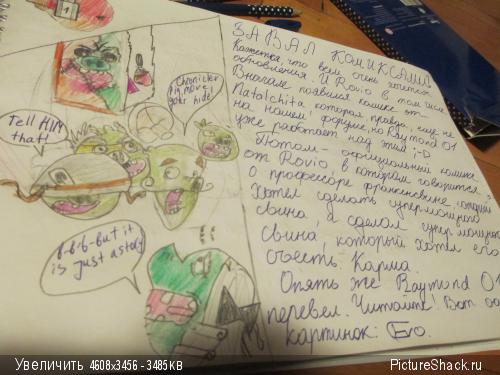 Chronicler
pig, move
your hide!
Tell HIM
that!
B-b-b-but it
is just a story
ЗАВАЛ КОМИКСАМИ
Кажется, что всем очень хотется
обновления. И Rovio в том числе.
Вначале появился комикс от
Natalchita который, правда, еще не
на нашем форуме, но Raymond 01
уже работает над этим ;-D
Потом - официальный комикс
от Rovio в котором говорится
о профессоре франкенсвине, который
хотел сделать супермощного
свина, и сделал супер мощного
свина, который хотел его
съесть. Карма.
Опять же Raymond 01
перевел. Читайте. Вот
картинок:
Увеличить 4608x3456 - 3485KB
PictureShack.ru